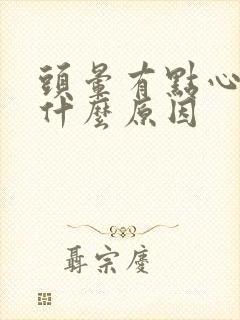 頭暈有點心
什麼原因
聶宗慶